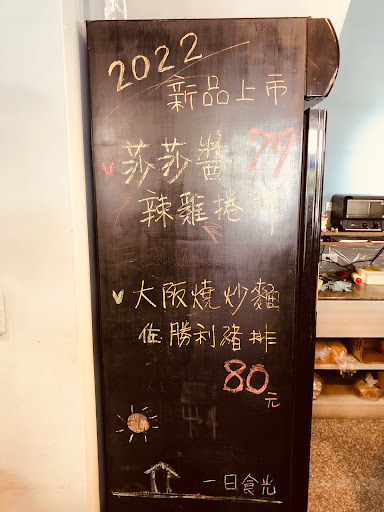 2022
新品上市
莎莎醬 79
辣雞捲餅
大阪燒炒麵
佐勝利豬排
80元
一日食光